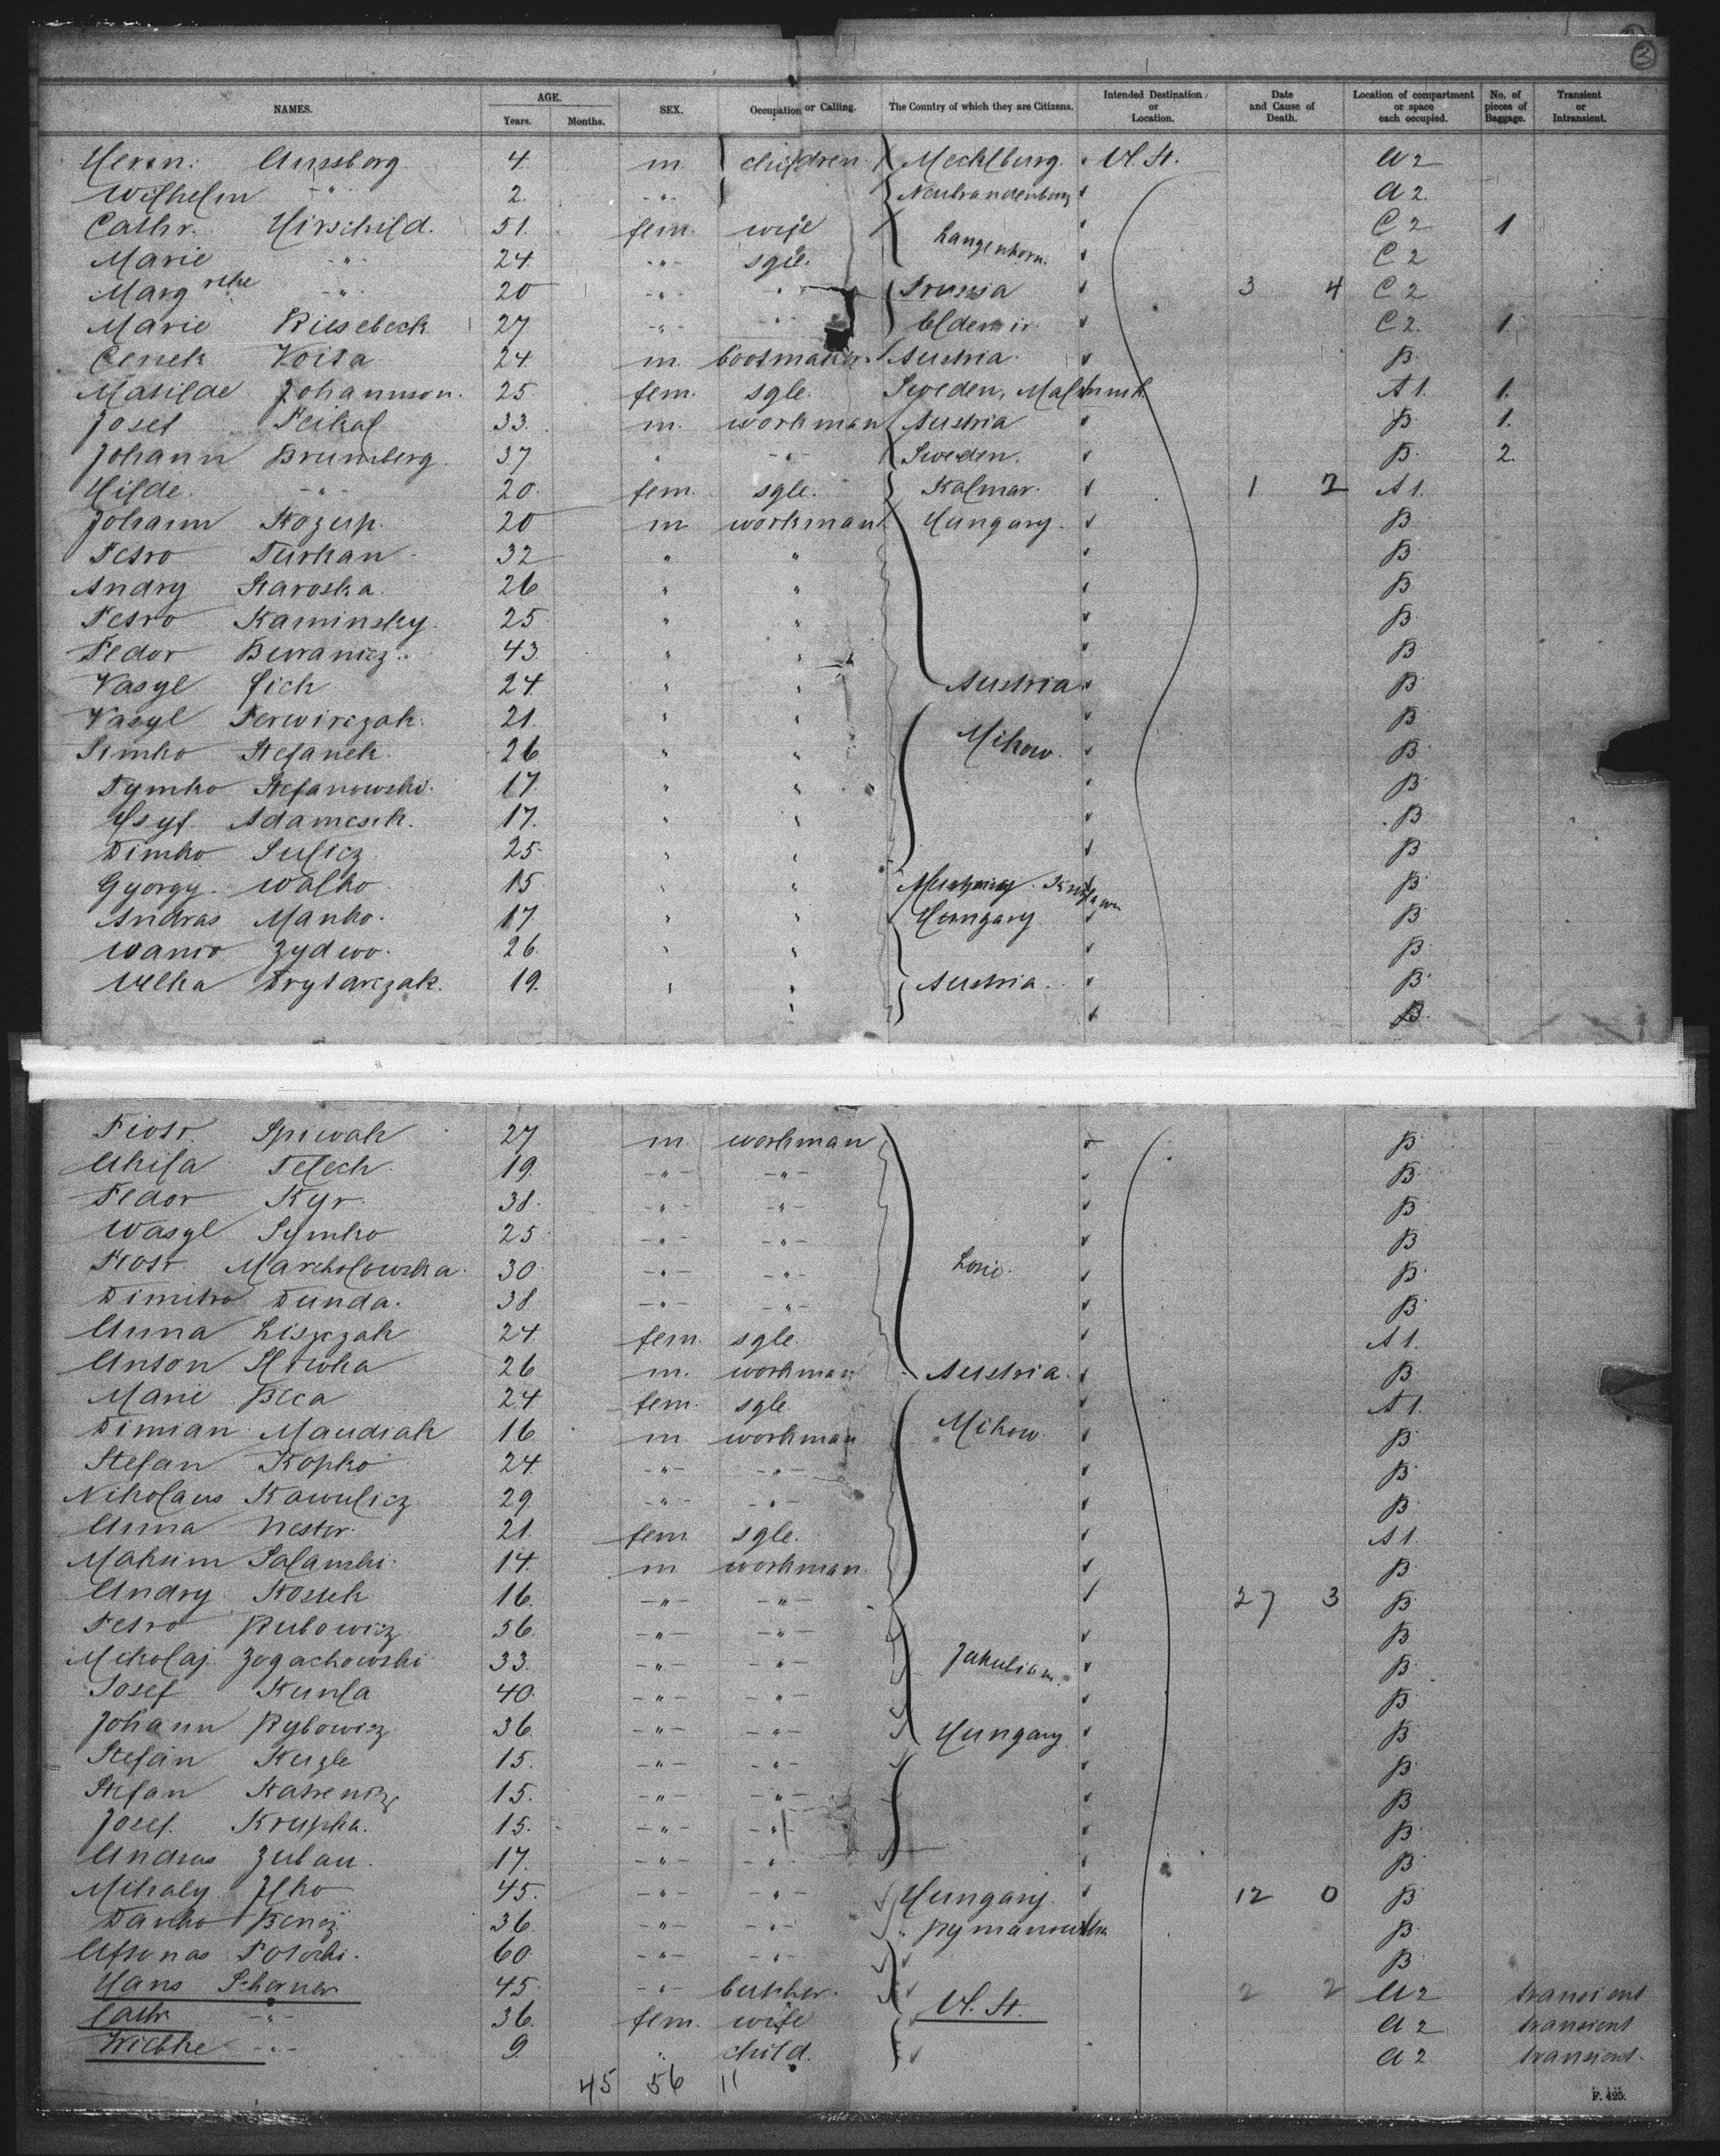 3
NAMES. AGE. Years. Months. SEX. Occupation or Calling. The Country of which they are Citizens. Intended Destination or Location. Date and Cause of Death. Location of compartment or space each occupied. No. of pieces of Baggage. Transient or Intransient.
Herm. 4. m. children Mecklburg. U. St. A2
Wilhelm -"- 2. -"- Neubrandenburg A2.
Cathr. Hirschild. 51. fem. wife C2 1
Marie -"- 24. -"- sgle. Langenhorn. C2
Margrethe -"- 20 -"- " Prussia 3 4 C2
Marie Riesebeck 27 -"- -"- C2. 1.
Cenek Voita 24. m. Austria. B.
Matilde Johannson. 25. fem. sgle. Sweden, A1. 1.
Josef Feikal 33. m. workman Austria B. 1.
Johann Brumberg. 37 " -"- Sweden. B. 2.
Hilde. -"- 20. fem. sgle. Kalmar. 1 2 A1.
Johann Kozup. 20 m workman Hungary. B.
Petro Turkan 32 " " B.
Andry Staroska. 26 " " B.
Petro Kaminsky. 25 " " B.
Fedor 43. " " B
Vasyl 24. " " Austria B.
Vasyl 21. " " B.
Simko Stefanek. 26 " " Mikow. B.
Tymko Stefanowski. 17. " " B.
Adamcsik. 17. " " B.
Dimko Sulicz 25. " " B.
Gyorgy. Walko 15 " " B.
Andras Manko. 17. " " Hungary B.
Wanio Zydwo. 26. " " B.
Drytarczak. 19. " " Austria. B.
" B.
Piotr. Spiwak 27 m. workman B.
Telech 19. -"- -"- B.
Fedor Kyr. 38. -"- -"- B.
Wasyl Symko 25 -"- -"- B.
Piotr. Marcholowska. 30 -"- -"- Losie. B.
Dimitro Dunda. 38. -"- -"- B.
Anna Liszczak 24. fem. sgle. A1.
Anton 26 m. workman Austria. B.
Marie Beca 24 fem. sgle. A1.
Dimian Maudiak 16 m. workman Mikow. B.
Stefan Kopko 24. -"- -"- B.
Nikolaus Kawulicz 29. -"- -"- B.
Anna Nester. 21. fem. sgle. A1.
Maksim 14. m workman. B.
Andry 16. -"- -"- 27 3 B.
Petro Rubowicz 56. -"- -"- B.
Mikolaj Zogachowski 33. -"- -"- B.
Josef Kunla 40. -"- -"- B.
Johann Rybowicz 36. -"- -"- Hungary. B.
Stefan Kuzle 15. -"- -"- B.
Stefan 15. -"- -"- B.
Josef. Krupka. 15. -"- -"- B.
Andras Zuban. 17. -"- -"- B.
Mihaly Ilko 45. -"- -"- Hungary. 12 0 B
Danko Bencz 36. -"- -"- B.
60. -"- -"- B.
Hans 45. -"- butcher. 2 2 A2 transient
Cath. -"- 36. fem. wife U. St. A2 transient
Wiebke -"- 9. " child. A2 transient.
45 56 11
F. 425.